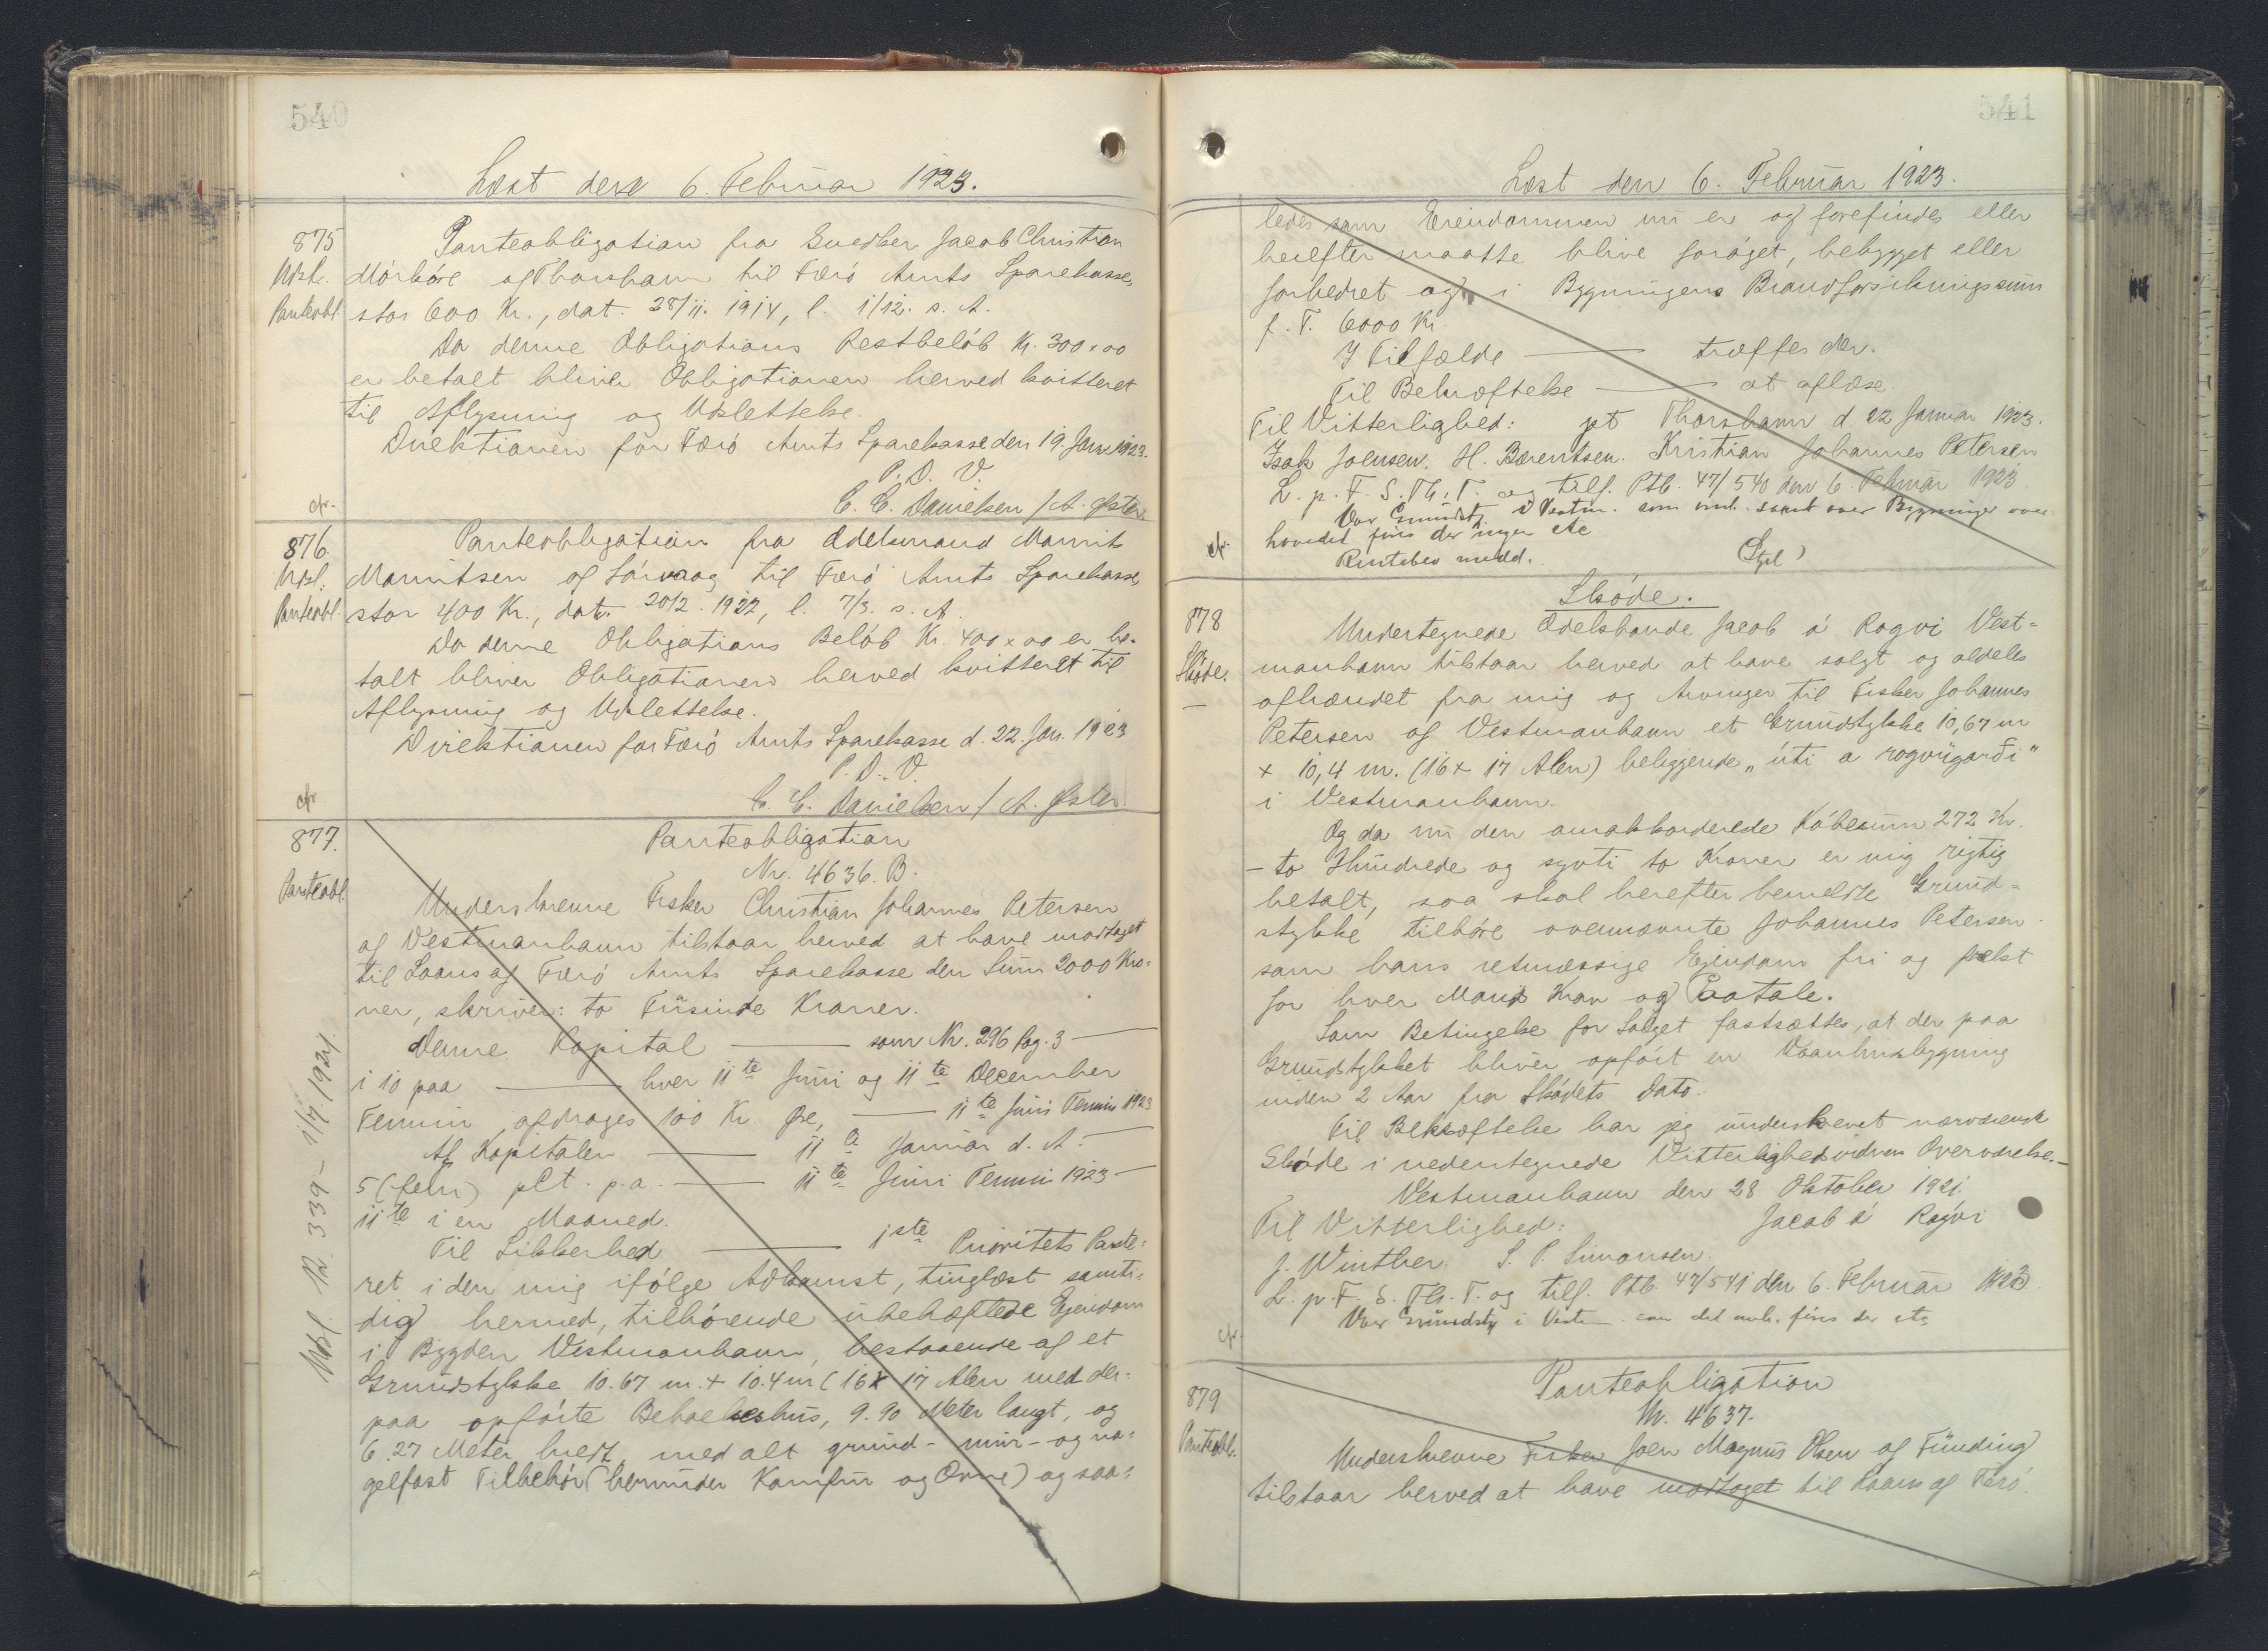 540
Læst den 6. Februar 1923.
875
Udsl.
Panteobl.
Panteobligation fra Snedker Jacob Christian
Mörköre af Thorshavn til Færö Amts Sparekasse,
stor 600 Kr., dat. 28/11. 1914, l. 1/12. s. A.
Da denne Obligations Restbelöb Kr. 300 x 00
er betalt bliver Obligationen herved kvitteret
til Aflysning og Udslettelse.
Direktionen for Færö Amts Sparekasse den 19. Jan. 1923.
P. D. V.
C. C. Danielsen / A. Øster.
cfr.
876.
Udsl.
Panteobl.
Panteobligation fra Odelsmand Mourits
Mouritsen af Sörvaag til Færö Amts Sparekasse,
stor 400 Kr., dat. 20/2. 1922, l. 7/3. s. A.
Da denne Obligations Belöb Kr. 400 x 00 er be-
talt bliver Obligationen herved kvitteret til
Aflysning og Udslettelse.
Direktionen for Færö Amts Sparekasse d. 22. Jan. 1923
P. D. V.
C. C. Danielsen / A. Øster.
cfr
877.
Panteobl.
Panteobligation
Nr. 4636. B.
Underskrevne Fisker Christian Johannes Petersen
af Vestmanhavn tilstaar herved at have modtaget
til Laans af Færö Amts Sparekasse den Sum 2000 Kro-
ner, skriver: to Tusinde Kroner.
Denne Kapital — som Nr. 296 Pag. 3 —
i 10 paa — hver 11te Juni og 11te December
Termin afdrages 100 Kr. Øre, — 11te Juni Termin 1923
Af Kapitalen — 11te Januar d. A. —
5 (fem) pCt. p.a. — 11te Juni Termin 1923 —
11te i en Maaned.
Til Sikkerhed — 1ste Prioritets Pante-
ret i den mig ifölge Adkomst, tinglæst samti-
dig hermed, tilhörende ubehæftede Ejendom
i Bygden Vestmanhavn, bestaaende af et
Grundstykke 10.67 m. + 10.4 m (16 x 17 Alen med der-
paa opförte Beboelseshus, 9.90 Meter langt, og
6.27 Meter bredt, med alt grund- mur- og na-
gelfast Tilbehör (herunder Komfur og Ovne) og saa-
Udsl. R. 339 - 1/7 1924.
541
Læst den 6. Februar 1923.
ledes som Ejendommen nu er og forefindes eller
herefter maatte blive foröget, bebygget eller
forbedret og i Bygningens Brandforsikringssum
f. T. 6000 Kr.
I Tilfælde — træffes der.
Til Bekræftelse — at aflæse.
Til Vitterlighed: pt Thorshavn d 22 Januar 1923.
Isak Joensen. H. Bærentsen. Kristian Johannes Petersen
L. p. F. S. Th. T. og tilf. Ptb. 47/540 den 6. Februar 1923.
Vor Grundst. i Vestm. som omh. samt over Bygninger over
hovedet fins der ingen etc.
Rentebev medd.
cfr.
878
Sköde.
Sköde.
Undertegnede Odelsbonde Jacob á Rógvi Vest-
manhavn tilstaar herved at have solgt og aldeles
afhændet fra mig og Arvinger til Fisker Johannes
Petersen af Vestmanhavn et Grundstykke 10,67 m
+ 10,4 m. (16 + 17 Alen) beliggende „úti a rogvugarði"
i Vestmanhavn.
Og da nu den omakkorderede Köbesum 272 Kr.
- to Hundrede og syvti to Kroner er mig rigtig
betalt, saa skal herefter bemeldte Grund-
stykke tilhöre ovennævnte Johannes Petersen
som hans retmæssige Ejendom fri og frelst
for hver Mands Krav og Paatale.
Som Betingelse for Salget fastsættes, at der paa
Grundstykket bliver opfört en Vaanhusbygning
inden 2 Aar fra Sködets Dato.
Til Bekræftelse har jeg underskrevet nærværende
Sköde i nedentegnede Vitterlighedsvidners Overværelse.
Vestmanhavn den 28 Oktober 1921.
Til Vitterlighed: Jacob á Rógvi
J. Winther. S. P. Simonsen.
L. p. F. S. Th. T. og tilf. Ptb. 47/541 den 6. Februar 1923.
Vor Grundst. i Vestm. som det omh. fins der etc
cfr.
879
Panteobl.
Panteobligation
Nr. 4637.
Underskrevne Fisker Joen Magnus Olsen af Funding
tilstaar herved at have modtaget til Laans af Færö